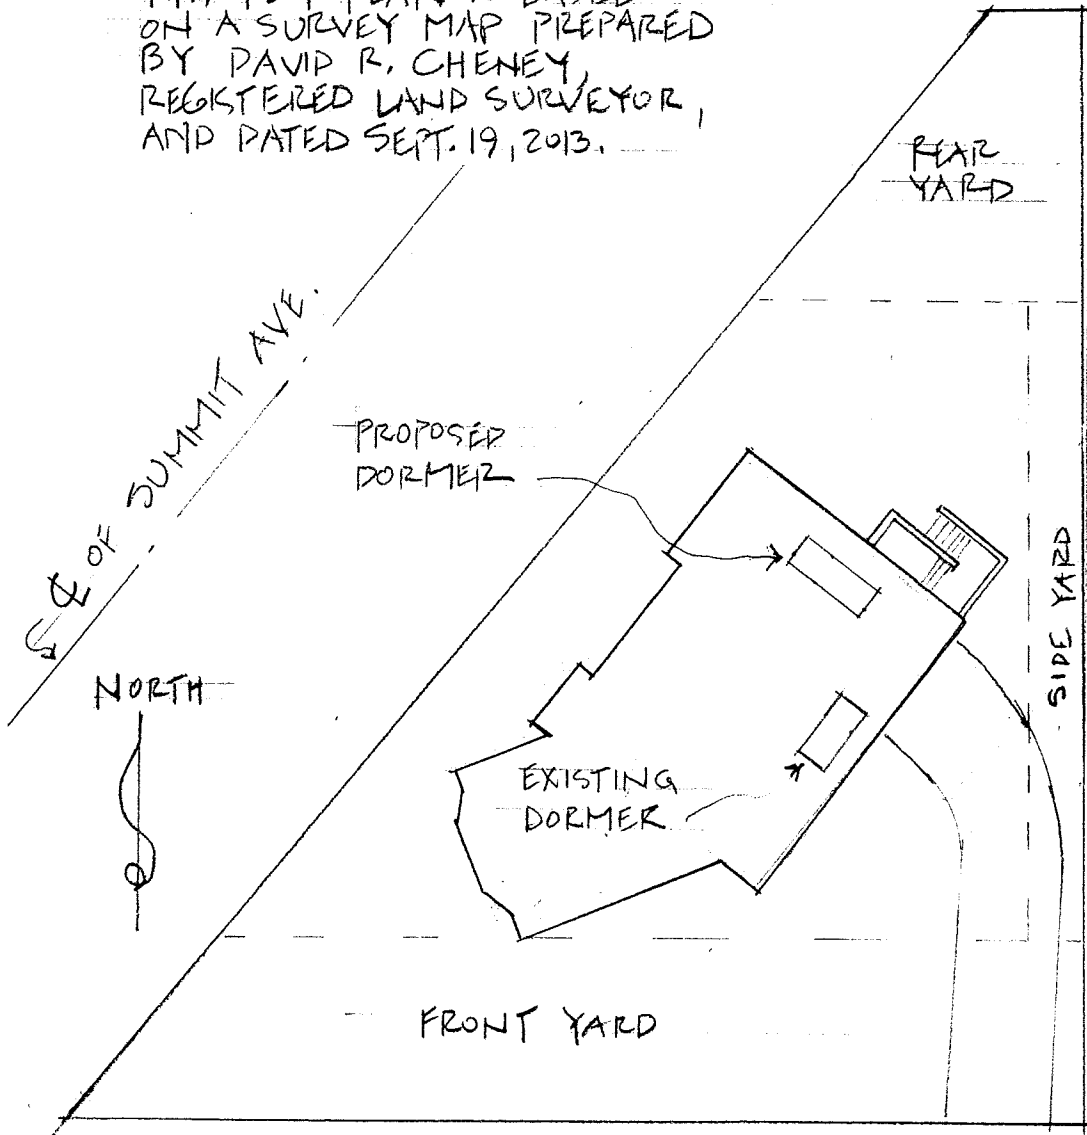 ON A SURVEY MAP PREPARED
BY DAVID R. CHENEY,
REGISTERED LAND SURVEYOR,
AND DATED SEPT. 19, 2013.
REAR
YARD
℄ OF SUMMIT AVE.
PROPOSED
DORMER
SIDE YARD
NORTH
EXISTING
DORMER
FRONT YARD